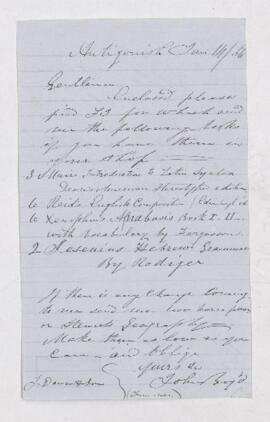 Antigonish Jan 14/56
Gentlemen
Enclosed please
find £3 for which send
me the following books
if you have them in
your shop
3 Mairs Introduction to Latin Syntax
American Stereotype edition
6 Reids English Composition (Edinburgh
6 Xenophons Anabasis Book I II
with vocabulary by Fergusson
2 Gesenius Hebrew Grammar
By Rodiger
If there is any change coming
to me send me two
or Stewarts Geography
Make them as low as you
can and oblige
yours &c
John Boyd
J. Dawson & Son